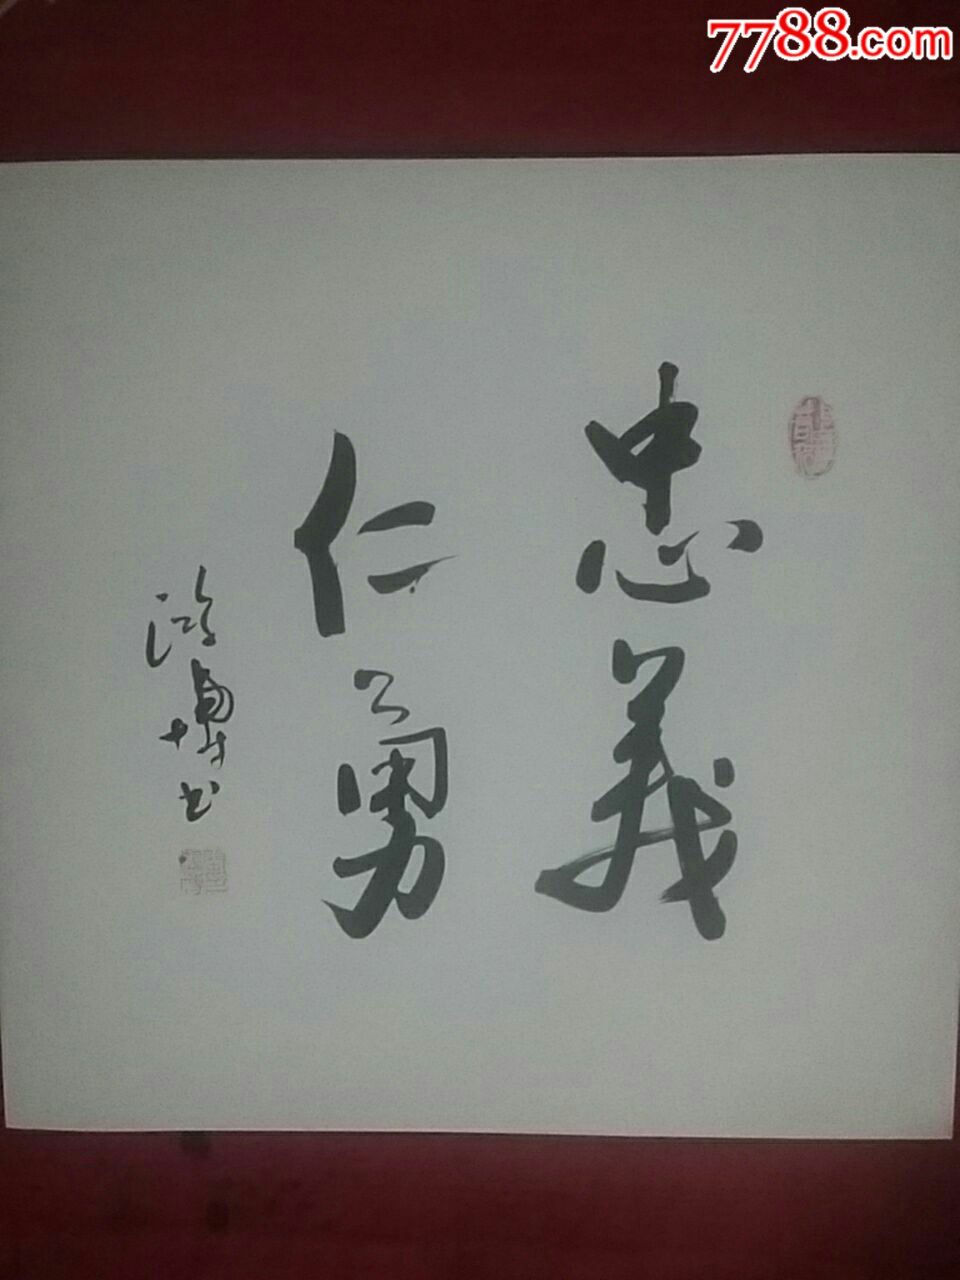 7788.com
忠義
仁勇
博书